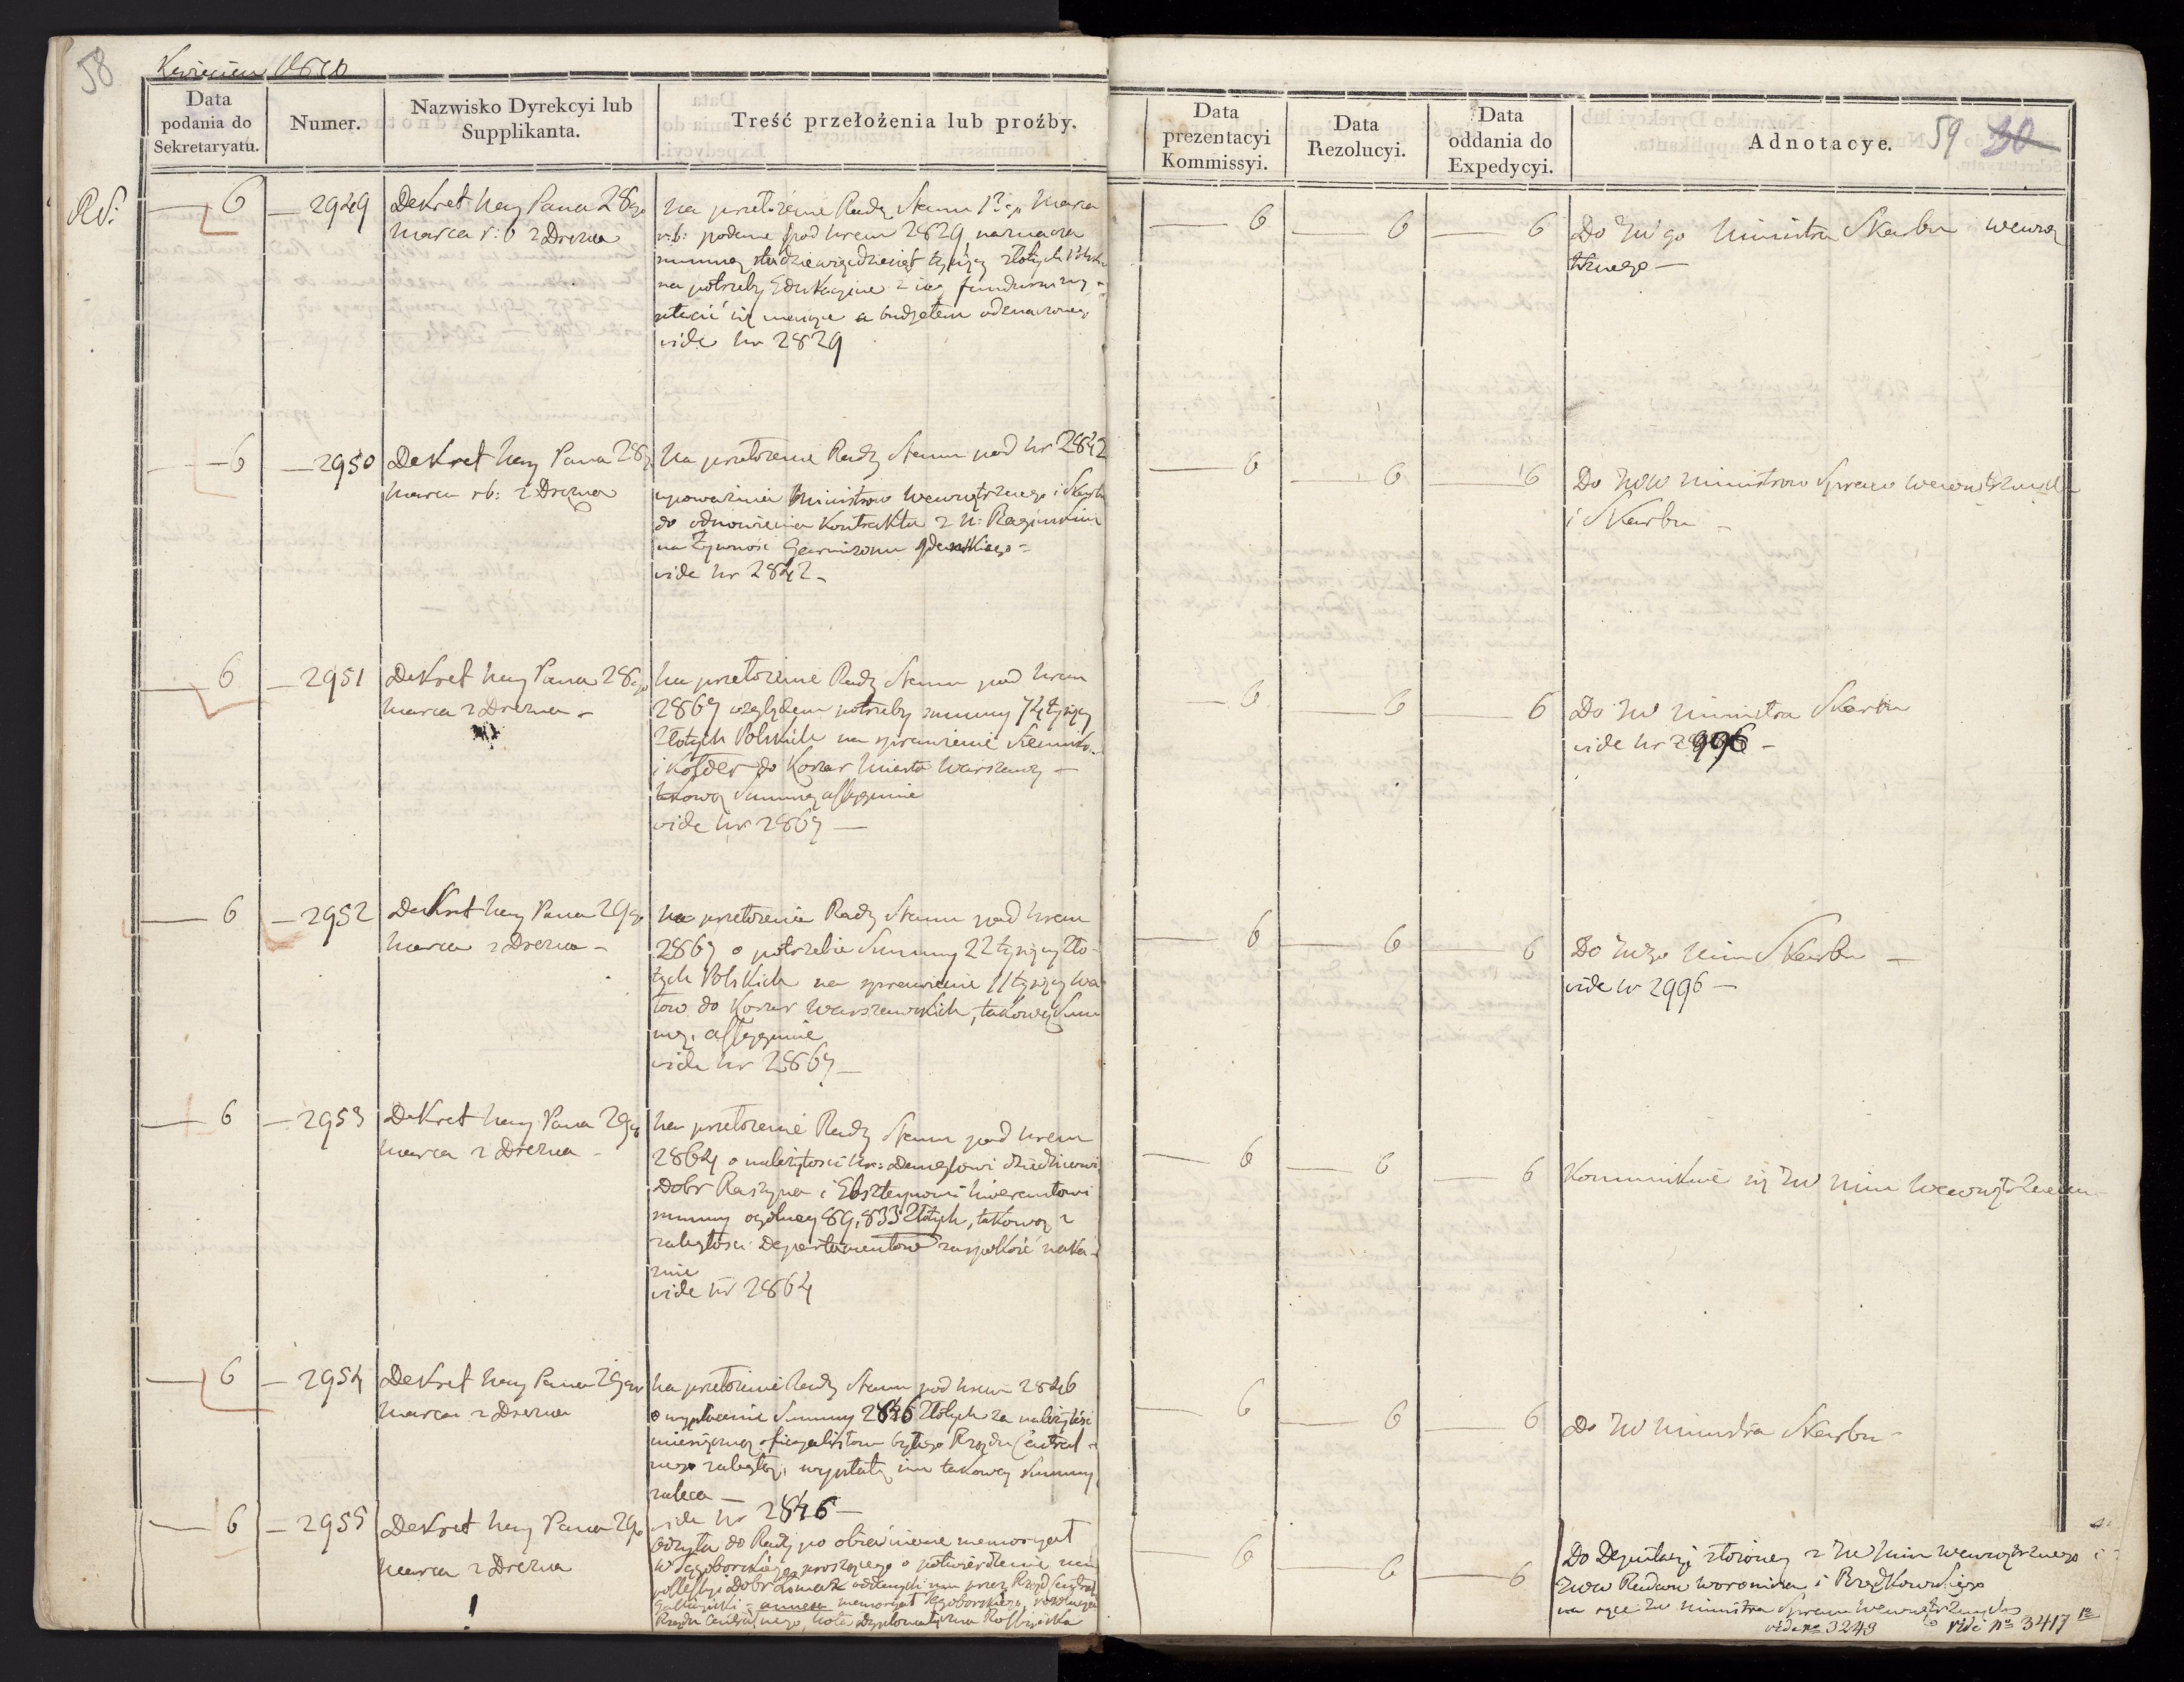 58
Kwiecień 1810
Data podania do Sekretaryatu.
Numer.
Nazwisko Dyrekcyi lub Supplikanta.
Treść przełożenia lub proźby.
Data prezentacyi Kommissyi.
Data Rezolucyi.
Data oddania do Expedycyi.
Adnotacye.
59 30
6 — 2949
Dekret Nay Pana 28go
Marca r: b z Drezna
Na przełożenie Rady Stanu
r: b: podane pod Nrem 2829 naznacza
summę stodziewięćdziesiąt tysięcy Złotych
na potrzeby Edukacyine z iey funduszu
a budżetem odznaczoney
vide Nr 2829
6 6 6
Do JW go Ministra Skarbu wewnę
trznego —
6 — 2950
Dekret Nay Pana 28go
Marca rb: z Drezna
Na przełożenie Rady Stanu pod Nr 2842
upoważnia Ministrów Wewnętrznego i Skarbu
do odnowienia Kontraktu z N:
na Żywność Garnizonu Gdańskiego =
vide Nr 2842 —
6 6 6
Do JWW Ministrów Spraw Wewnętrznych
i Skarbu —
6 — 2951
Dekret Nay Pana 28go
Marca z Drezna —
Na przełożenie Rady Stanu pod Nrem
2867 względem potrzeby summy 74 tysięcy
Złotych Polskich na sprawienie Sienników
i Kołder do Koszar Miasta Warszawy —
takową Summę assygnuie
vide Nr 2867 —
6 6 6
Do JW Ministra Skarbu
vide Nr 2996 —
6 — 2952
Dekret Nay Pana 29go
Marca z Drezna —
Na przełożenie Rady Stanu pod Nrem
2867 o potrzebie Summy 22 tysięcy Zło-
tych Polskich na sprawienie 11 tysięcy
do Koszar Warszawskich, takową Sum
mę assygnuie
vide Nr 2867 —
6 6 6
Do JWgo Min Skarbu —
vide Nr 2996 —
6 — 2953
Dekret Nay Pana 29go
Marca z Drezna —
Na przełożenie Rady Stanu pod Nrem
2864 o należytości dziedzicowi
Dobr Raszyna i Liwerantowi
summy ogólney 89,833 Złotych, takową z
zaległości Departamentów zaspokoić naka-
zuie
vide Nr 2864
6 6 6
Kommunikuie się JW Min Wewnętrznemu
6 — 2954
Dekret Nay Pana 29go
Marca z Drezna
Na przełożenie Rady Stanu pod Nrem 2846
o wypłacenie Summy 2846 Złotych za należytość
miesięczną officyalistom byłego Rządu Central-
nego zaległą, wypłatę im takowey Summy
zaleca —
vide Nr 2846 —
6 6 6
Do JW Ministra Skarbu —
6 — 2955
Dekret Nay Pana 29go
Marca z Drezna
Odsyła do Rady po obiaśnienie memoryał
W Tęgoborskiego proszącego o potwierdzenie
possessyi Dobr oddanych mu przez Rząd Central
Gallicyiski = annexa memoryał Tęgoborskiego,
Rządu Centralnego, Nota Dyplomatyczna Rossyiska
6 6 6
Do Deputacyi złożoney z JW Min Wewnętrznego i
JWW Radców Woronicza i
na ręce JW Ministra Spraw Wewnętrznych
vide no 3243 vide no 3417